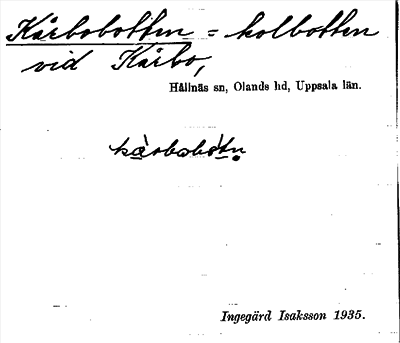 Kårbobotten = kolbotten
vid Kårbo,
Hållnäs sn, Olands hd, Uppsala län.
kàrbobòtn
Ingegärd Isaksson 1935.